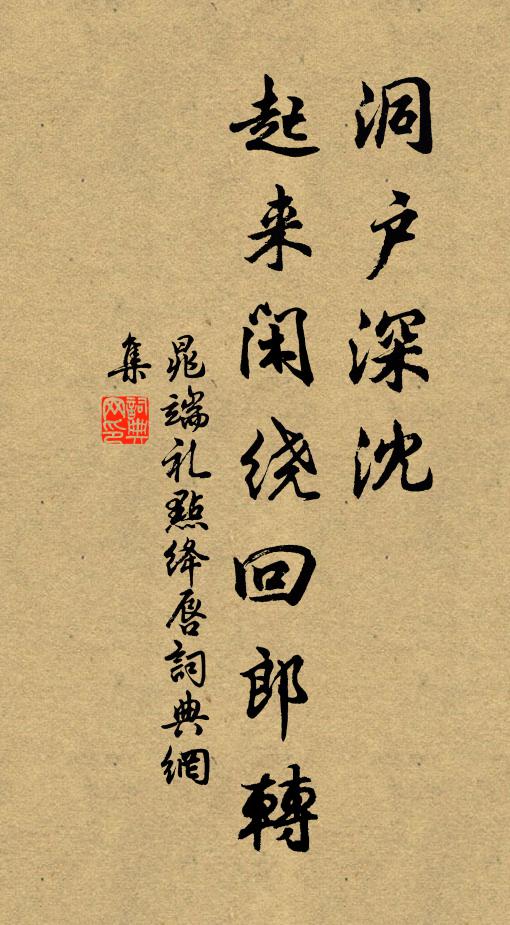 洞户深沈
起来闲绕回郎轉
晁端礼點绛唇詞典網
集
詞典網印